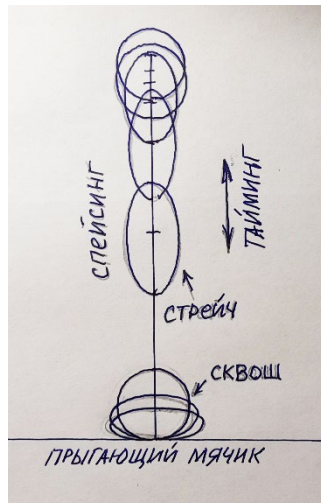 СПЕЙСИНГ
ТАЙМИНГ
СТРЕЙЧ
СКВОШ
ПРЫГАЮЩИЙ МЯЧИК